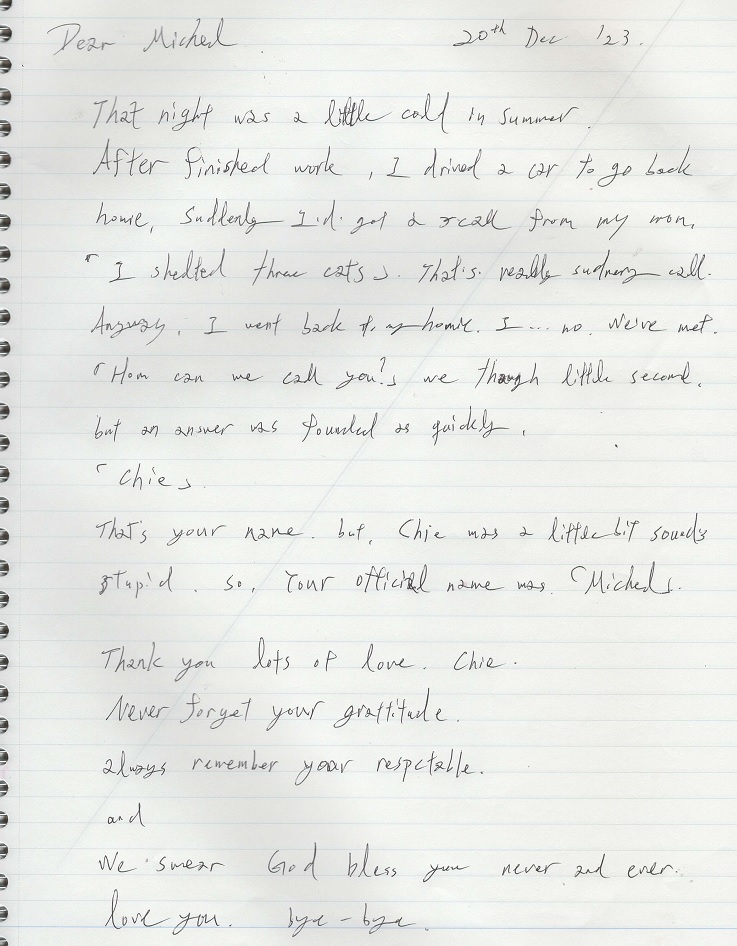 Dear Michel 20th Dec '23.
That night was a little cold in summer.
After finished work, I drived a car to go back
home, Suddenly I'd got a call from my mom.
「I shelted three cats」. That's really call.
Anyway, I went back to my home. I ... no. We've met.
「How can we call you?」 we though little second.
but an answer was founded as quickly.
「Chie」.
That's your name. but, Chie was a little bit sounds
stupid. so, Your official name was 「Michel」.
Thank you lots of love. Chie.
Never forget your grattitude.
always remember your respctable.
and
We swear God bless you never and ever.
love you. bye-bye.